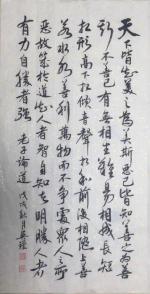 天下皆知美之為美斯惡已皆知善之為善
斯不善已有無相生難易相成長短
相形高下相傾音聲相和前後相隨上善
若水水善利萬物而不爭處眾人之所
惡故幾於道知人者智自知者明勝人者
有力自勝者強 老子論道 戊戌秋月